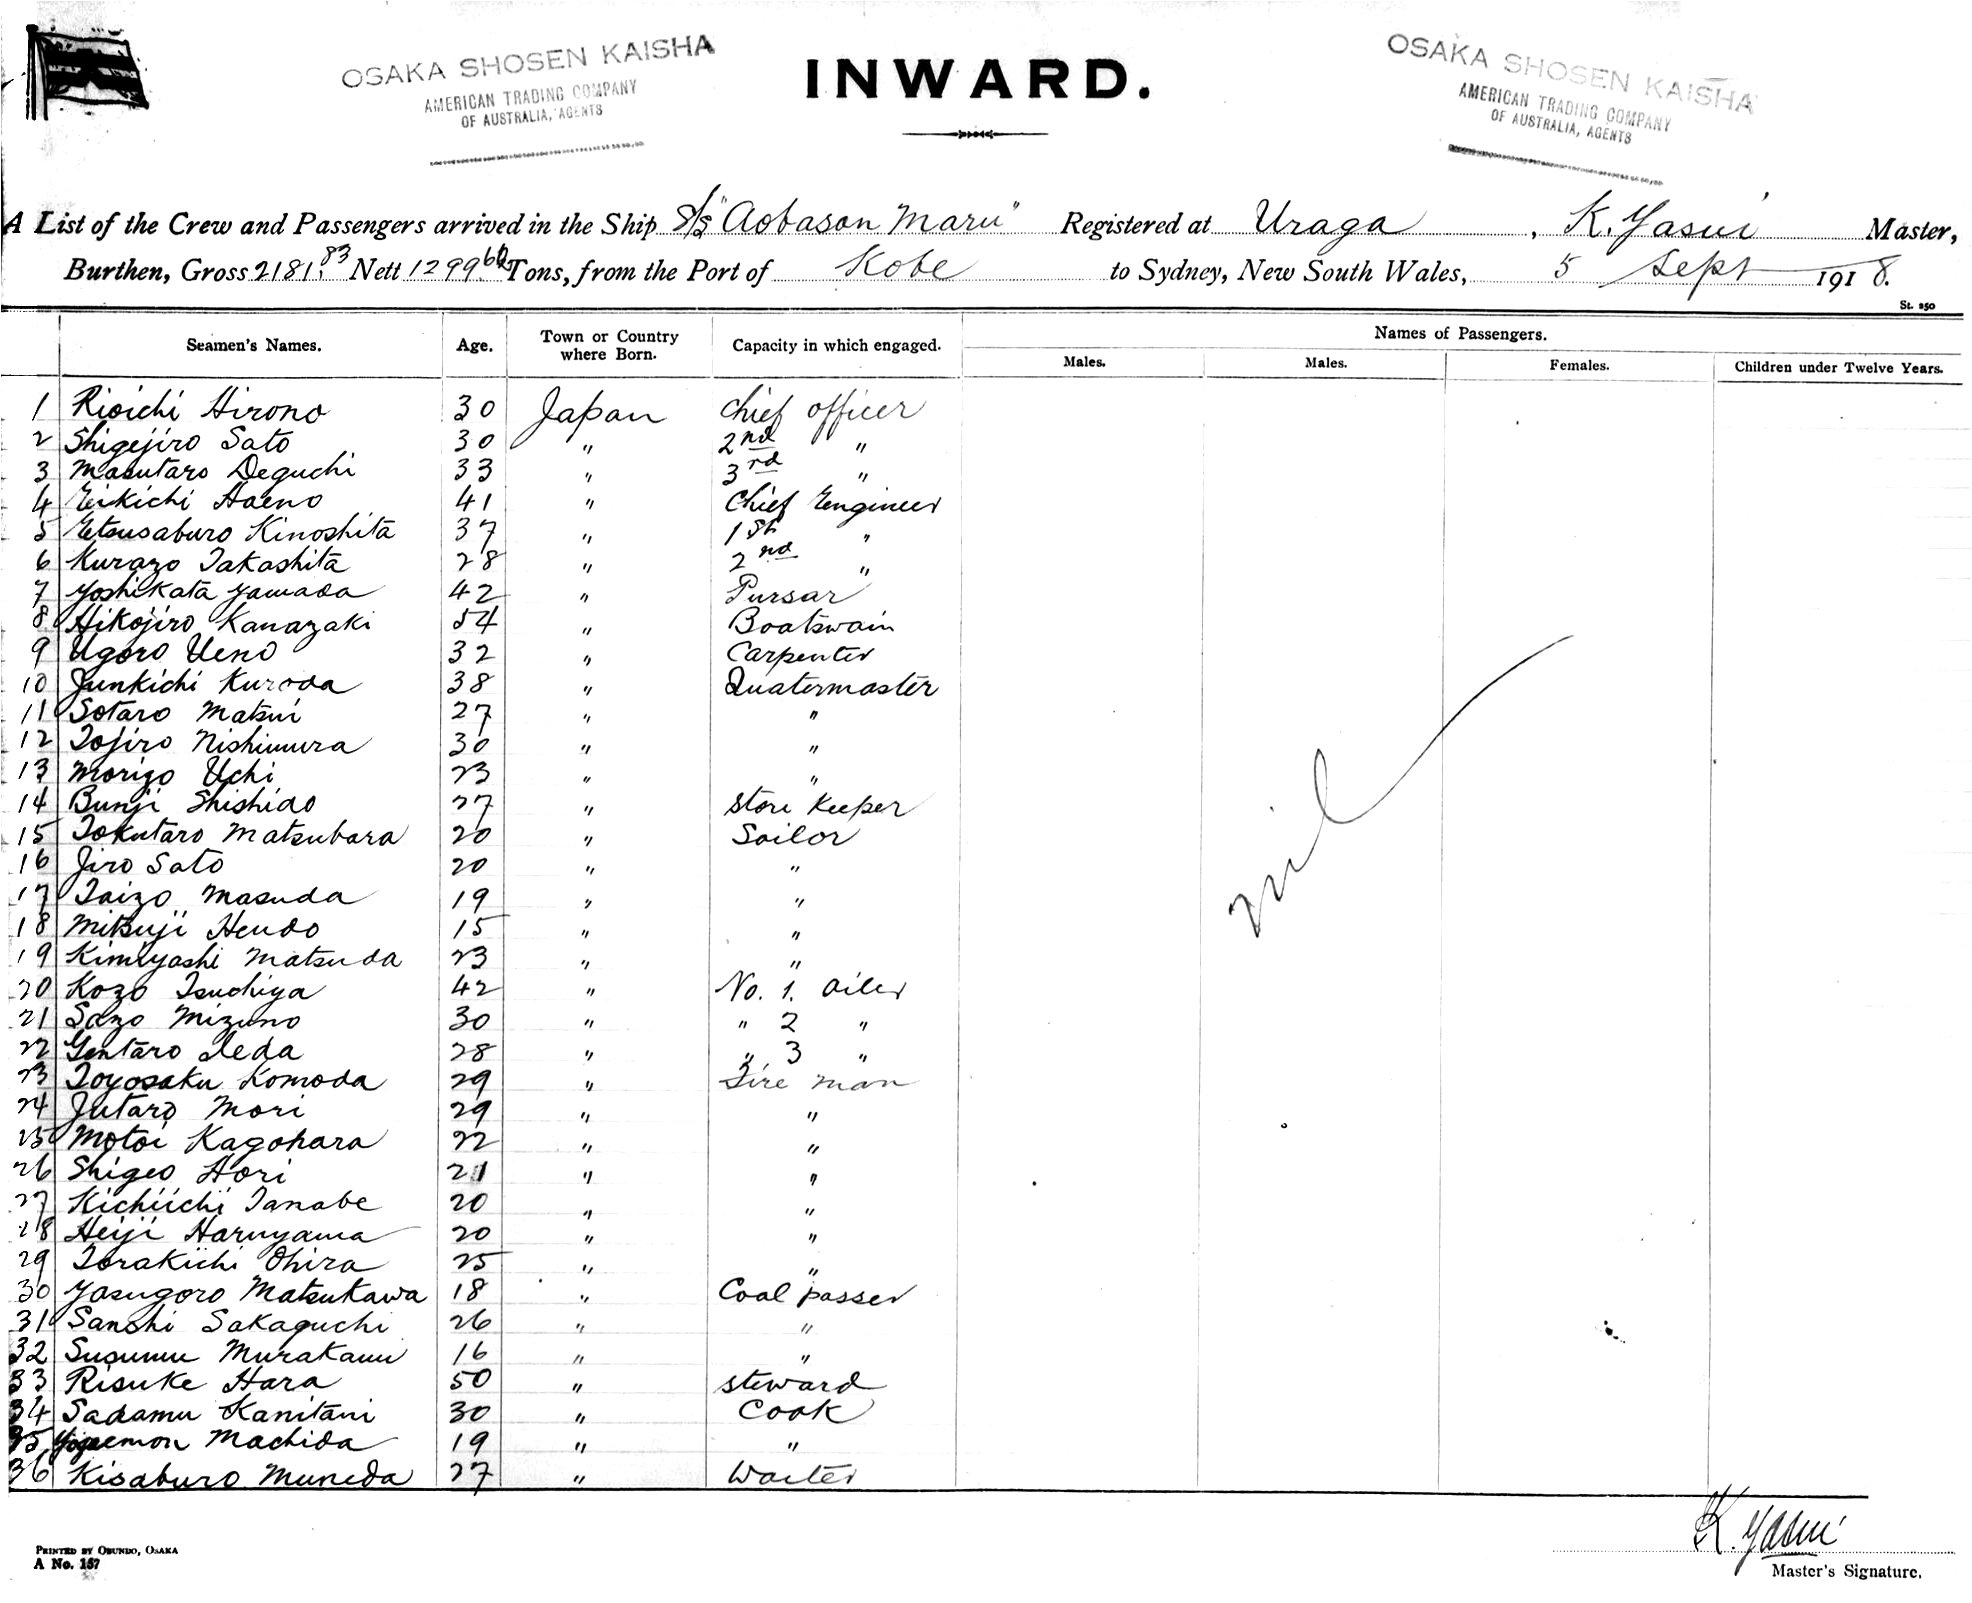 OSAKA SHOSEN KAISHA
AMERICAN TRADING COMPANY
OF AUSTRALIA, AGENTS
INWARD.
OSAKA SHOSEN KAISHA
AMERICAN TRADING COMPANY
OF AUSTRALIA, AGENTS
A List of the Crew and Passengers arrived in the Ship S/S "Aobasan Maru" Registered at Uraga, K. Yasui Master,
Burthen, Gross 2181.83 Nett 1299.60 Tons, from the Port of Kobe to Sydney, New South Wales, 5 Sept 1918.
St. 250
Seamen's Names. Age. Town or Country where Born. Capacity in which engaged. Names of Passengers.
Males. Males. Females. Children under Twelve Years.
1 Rioichi Hirono 30 Japan Chief officer
2 Shigejiro Sato 30 " 2nd "
3 Masutaro Deguchi 33 " 3rd "
4 Eikichi Haeno 41 " Chief Engineer
5 Etsusaburo Kinoshita 37 " 1st "
6 Kurazo Takashita 28 " 2nd "
7 Yoshikata Yamada 42 " Pursar
8 Hikojiro Kanazaki 54 " Boatswain
9 Ugoro Ueno 32 " Carpenter
10 Junkichi Kuroda 38 " Quatermaster
11 Sotaro Matsui 27 " "
12 Tojiro Nishimura 30 " "
13 Morizo Uchi 23 " "
14 Bunji Shishido 27 " Store Keeper
15 Tokutaro Matsubara 20 " Sailor
16 Jiro Sato 20 " "
17 Taizo Masuda 19 " "
18 Mitsuji Hendo 15 " "
19 Kimiyashi Matsuda 23 " "
20 Kozo Tsuchiya 42 " No. 1. oiler
21 Sazo Mizuno 30 " " 2 "
22 Gentaro Ieda 28 " " 3 "
23 Toyosaku Komoda 29 " Fire man
24 Jutaro Mori 29 " "
25 Motoi Kagohara 22 " "
26 Shigeo Hori 21 " "
27 Kichiichi Tanabe 20 " "
28 Heiji Haruyama 20 " "
29 Torakichi Ohira 25 " "
30 Yasugoro Matsukawa 18 " Coal passer
31 Sanshi Sakaguchi 26 " "
32 Susumu Murakami 16 " "
33 Risuke Hara 50 " steward
34 Sadamu Kanitani 30 " Cook
35 Machida 19 " "
36 Kisaburo Muneda 27 " Waiter
nil
K. Yasui
Master's Signature.
PRINTED BY OBUNDO, OSAKA
A No. 157